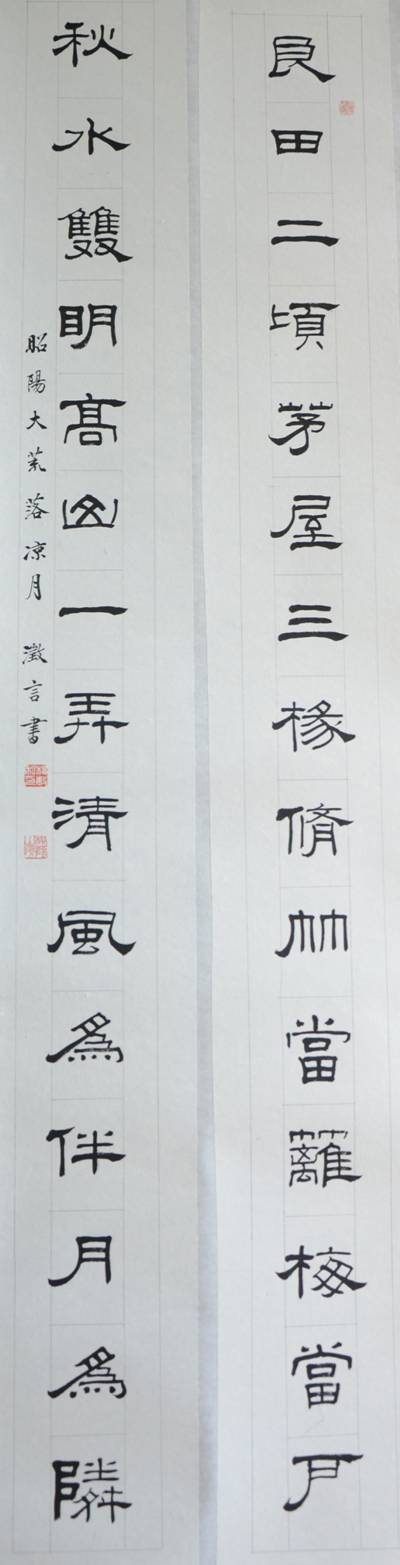 良田二頃茅屋三椽脩竹當蘺梅當戶
秋水雙明高山一弄清風為伴月為隣
昭陽大荒落涼月 澂言書